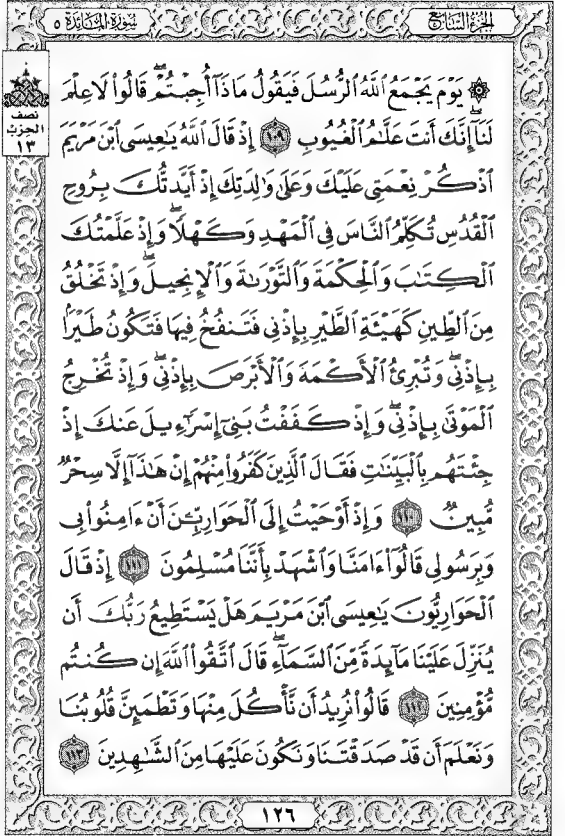 الجزء السابع
سورة المائدة ٥
نصف
الحزب
١٣
۞ يَوْمَ يَجْمَعُ ٱللَّهُ ٱلرُّسُلَ فَيَقُولُ مَاذَآ أُجِبْتُمْ ۖ قَالُوا۟ لَا عِلْمَ
لَنَآ ۖ إِنَّكَ أَنتَ عَلَّـٰمُ ٱلْغُيُوبِ ١٠٩ إِذْ قَالَ ٱللَّهُ يَـٰعِيسَى ٱبْنَ مَرْيَمَ
ٱذْكُرْ نِعْمَتِى عَلَيْكَ وَعَلَىٰ وَٰلِدَتِكَ إِذْ أَيَّدتُّكَ بِرُوحِ
ٱلْقُدُسِ تُكَلِّمُ ٱلنَّاسَ فِى ٱلْمَهْدِ وَكَهْلًا ۖ وَإِذْ عَلَّمْتُكَ
ٱلْكِتَـٰبَ وَٱلْحِكْمَةَ وَٱلتَّوْرَىٰةَ وَٱلْإِنجِيلَ ۖ وَإِذْ تَخْلُقُ
مِنَ ٱلطِّينِ كَهَيْـَٔةِ ٱلطَّيْرِ بِإِذْنِى فَتَنفُخُ فِيهَا فَتَكُونُ طَيْرًۢا
بِإِذْنِى ۖ وَتُبْرِئُ ٱلْأَكْمَهَ وَٱلْأَبْرَصَ بِإِذْنِى ۖ وَإِذْ تُخْرِجُ
ٱلْمَوْتَىٰ بِإِذْنِى ۖ وَإِذْ كَفَفْتُ بَنِىٓ إِسْرَٰٓءِيلَ عَنكَ إِذْ
جِئْتَهُم بِٱلْبَيِّنَـٰتِ فَقَالَ ٱلَّذِينَ كَفَرُوا۟ مِنْهُمْ إِنْ هَـٰذَآ إِلَّا سِحْرٌ
مُّبِينٌ ١١٠ وَإِذْ أَوْحَيْتُ إِلَى ٱلْحَوَارِيِّـۧنَ أَنْ ءَامِنُوا۟ بِى
وَبِرَسُولِى قَالُوٓا۟ ءَامَنَّا وَٱشْهَدْ بِأَنَّنَا مُسْلِمُونَ ١١١ إِذْ قَالَ
ٱلْحَوَارِيُّونَ يَـٰعِيسَى ٱبْنَ مَرْيَمَ هَلْ يَسْتَطِيعُ رَبُّكَ أَن
يُنَزِّلَ عَلَيْنَا مَآئِدَةً مِّنَ ٱلسَّمَآءِ ۖ قَالَ ٱتَّقُوا۟ ٱللَّهَ إِن كُنتُم
مُّؤْمِنِينَ ١١٢ قَالُوا۟ نُرِيدُ أَن نَّأْكُلَ مِنْهَا وَتَطْمَئِنَّ قُلُوبُنَا
وَنَعْلَمَ أَن قَدْ صَدَقْتَنَا وَنَكُونَ عَلَيْهَا مِنَ ٱلشَّـٰهِدِينَ ١١٣
١٢٦